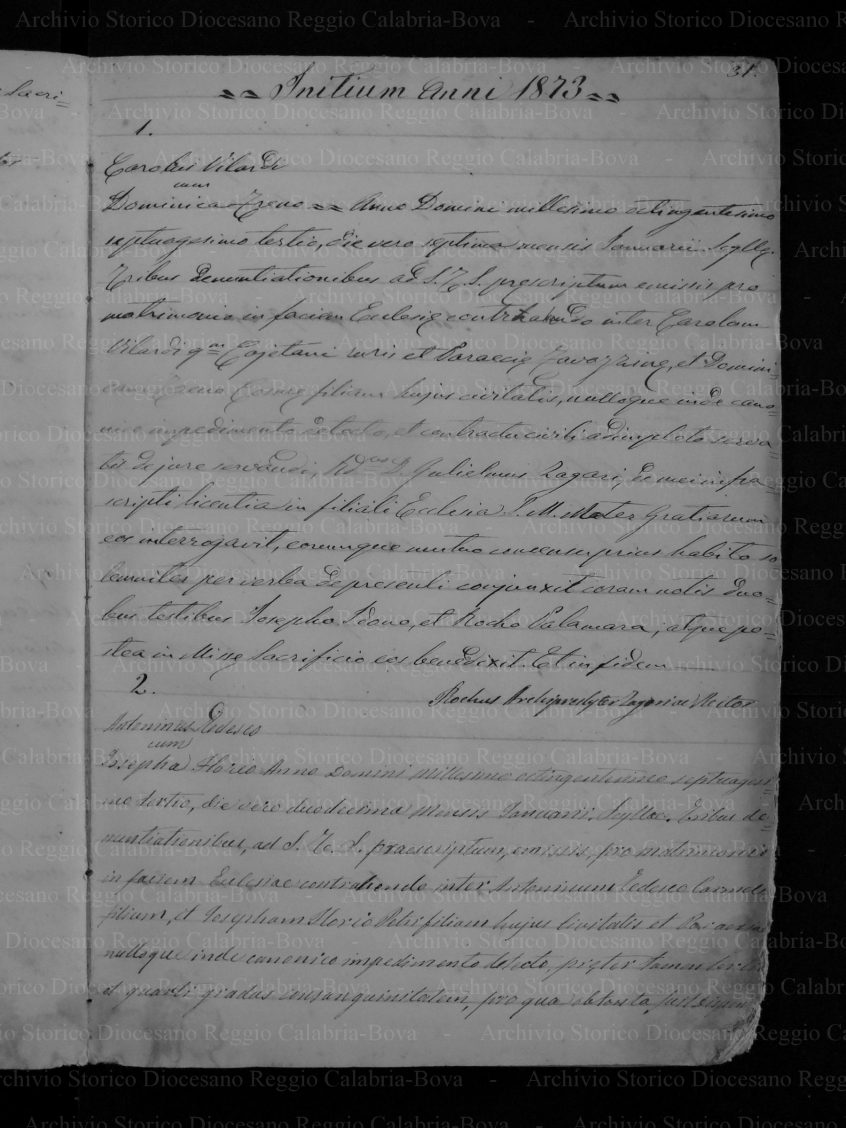 31.
Initium Anni 1873
1.
Carolus Vilardi
cum
Dominica Zreno Anno Domini millesimo octingentesimo
septuagesimo tertio, die vero septima mensis Januarii Scyllę.
Tribus denuntiationibus ad S. T. S. prescriptum emissis pro
matrimonio in faciem Ecclesię contrahendo inter Carolum
Vilardi qm Cajetani ruris et Paraccię et Domini=
cam Zreno Cosmę filiam hujus civitatis, nulloque inde cano=
nico impedimento detecto, et contractu civili adimpleto serva=
tis de jure servandi, Rdus D. Gulielmus Zagari, de mei infra=
scripti licentia in filiali Ecclesia S. M. Mater Gratiarum
eos interrogavit, eorumque mutuo consensu prius habito so
lemniter per verba de presenti conjunxit coram notis duo=
bus testibus Josepho Idono, et Rocho Palamara, atque po=
stea in Missę Sacrificio eos benedixit. Et in fidem
Rochus Archipresbyter Zagari Rector
2.
Antoninus Tedesco
cum
Josepha Florio Anno Domini Millesimo octingentesimo septuagesi
mo tertio, die vero duodecima Mensis Januarii Scyllae. Tribus de=
nuntiationibus, ad S. T. S. praescriptum, emissis, pro matrimonio
in faciem Ecclesiae contrahendo inter Antoninum Tedesco Carmelo
filium, et Josepham Florio Petri filiam hujus Civitatis et
nulloque inde canonico impedimento detecto, pręter tamen tertii
et quarti gradus consanguinitatem, pro qua obtenta,